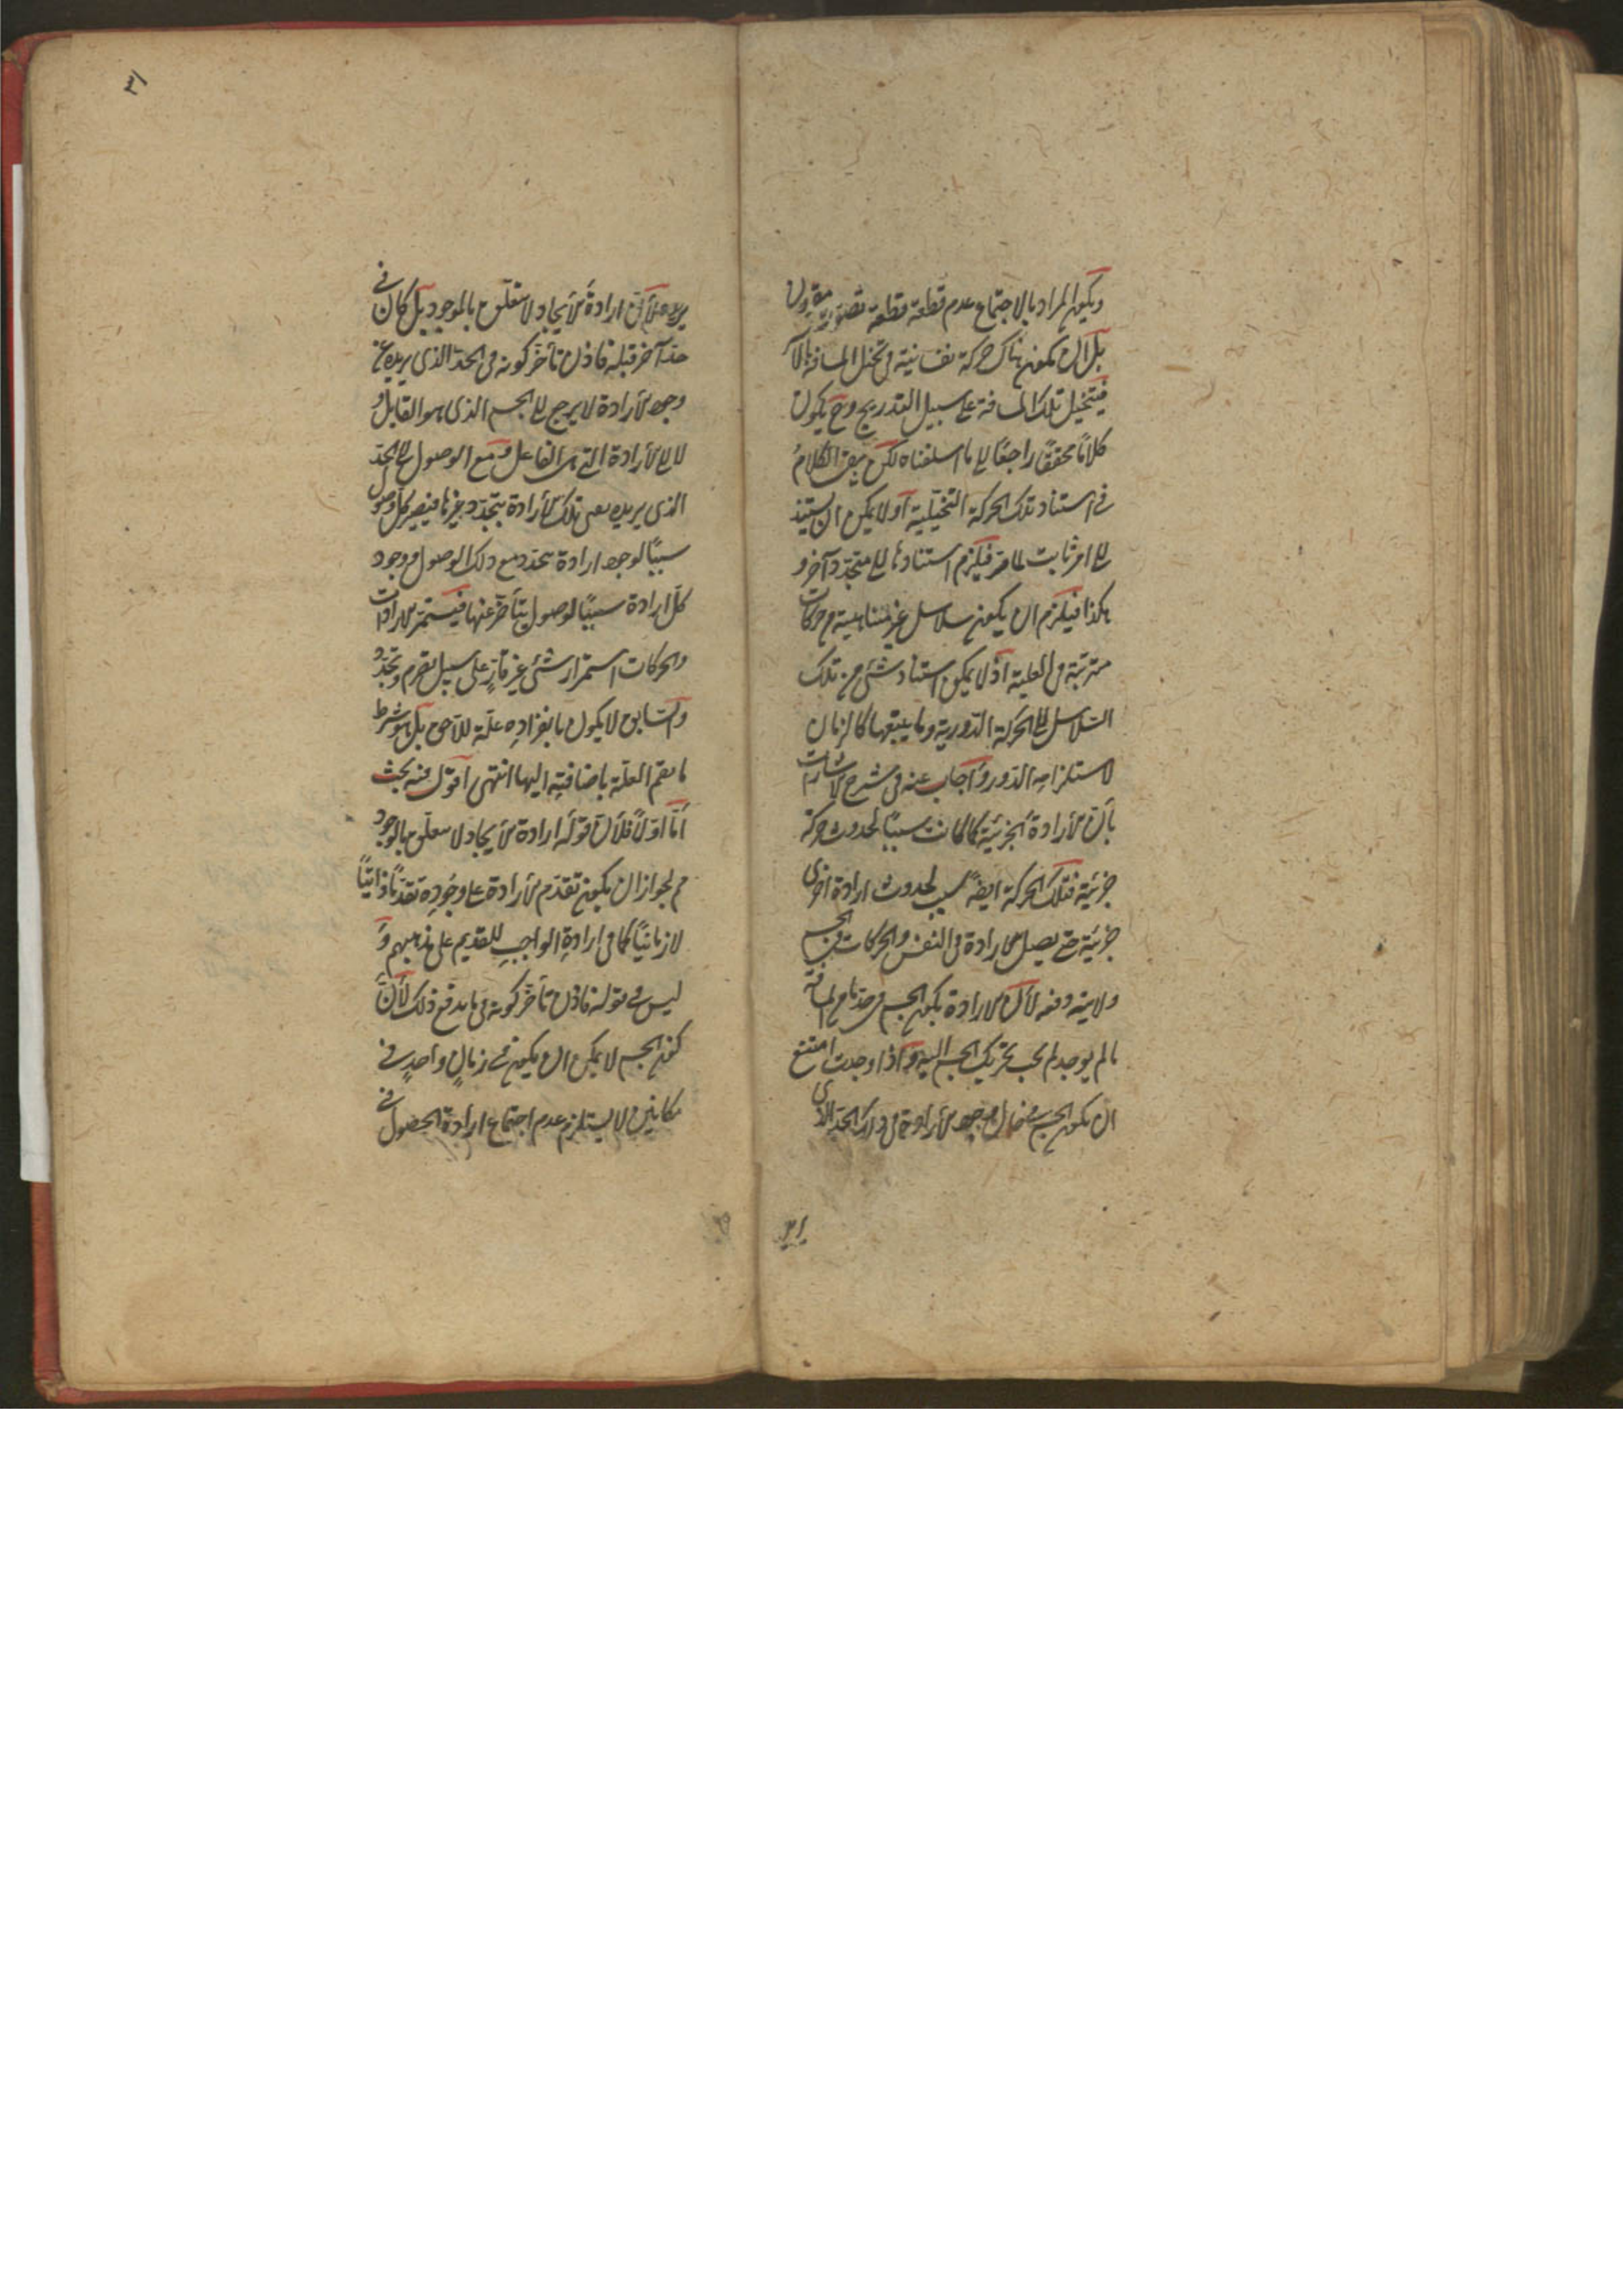 ويكون المراد بالاجتماع عدم قطعة قطعة تصور
بل ان يكون هناك حركة نفسانية في تخيل المسافة
فيتخيل تلك المسافة على سبيل التدريج وح يكون
كلاما محققا راجعا الى ما اسلفناه لكن يبقى الكلام
في استناد تلك الحركة التخيلية اذ لا يمكن ان يستند
الى امر ثابت لما مر فيلزم استنادها الى متجدد آخر و
هكذا فيلزم ان يكون سلاسل غير متناهية من حركات
مترتبة في العلية اذ لا يمكن استناد شئ من تلك
السلاسل الى الحركة الدورية وما يتبعها كالزمان
لاستلزامه الدور وأجاب عنه في شرح الاشارات
بأن الارادة الجزئية كما كانت سببا لحدوث حركة
جزئية فتلك الحركة ايضا سبب لحدوث ارادة اخرى
جزئية حتى يصل الارادة في النفس والحركات في الجسم
لأن الارادة يكون الجسم في حد ما من المسافة
ما لم يوجد لم يجب تحريك الجسم اليه واذا وجدت امتنع
ان يكون الجسم في حال وجود الارادة في ذلك الحد الذي
٣١
٣١
يريده لأن ارادة الايجاد لا يتعلق بالموجود بل كان في
حد آخر قبله فاذن تأخر كونه في الحد الذي يريده عن
وجود الارادة لا يرجع الى الجسم الذي هو القابل و
لا الى الارادة التي هي الفاعل ومع الوصول الى الحد
الذي يريده يفنى تلك الارادة يتجدد غيرها فيصير كل وصول
سببا لوجود ارادة يتجدد مع ذلك الوصول ووجود
كل ارادة سببا لوصول يتأخر عنها فيستمر الارادات
والحركات استمرار شئ غير قار على سبيل تصرم وتجدد
والسابق لا يكون بانفراده علة للاحق بل هو شرط
ما يتم العلة باضافته اليها انتهى اقول فيه بحث
أما اولا فلأن قوله ارادة الايجاد لا يتعلق بالموجود
مم لجواز ان يكون تقدم الارادة على وجوده تقدما ذاتيا
لا زمانيا كما في ارادة الواجب للقديم على مذهبهم و
ليس في قوله فاذن تأخر كونه في ما يدفع ذلك لأن
كون الجسم لا يمكن ان يكون في زمان واحد في
مكانين لا يستلزم عدم اجتماع ارادة الحصول في